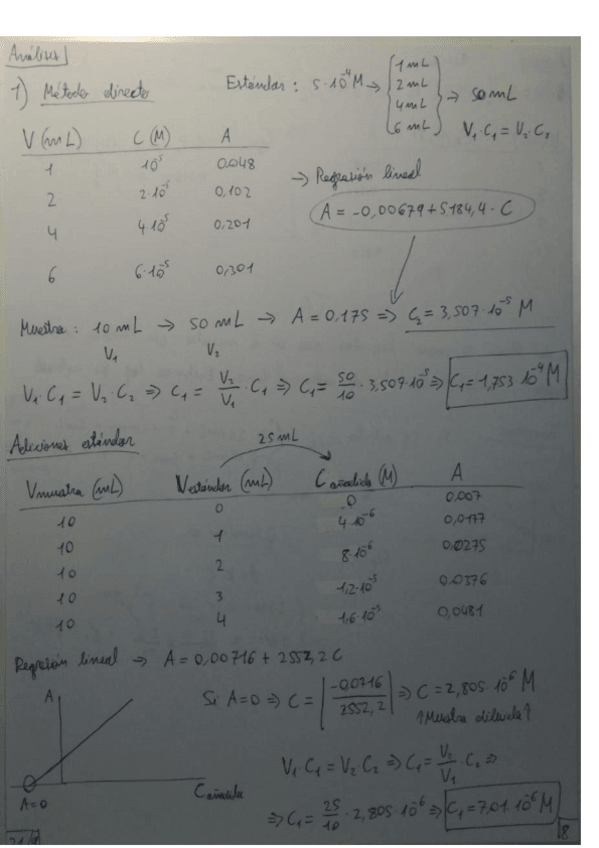 Análisis
1) Método directo
Estándar: 5·10⁻⁴ M → {1 mL
2 mL
4 mL
6 mL} → 50 mL
V₁·C₁ = V₂·C₂
V (mL) C (M) A
1 10⁻⁵ 0,048
2 2·10⁻⁵ 0,102
4 4·10⁻⁵ 0,201
6 6·10⁻⁵ 0,301
→ Regresión lineal
A = -0,00679 + 5184,4·C
Muestra: 10 mL → 50 mL → A = 0,175 ⇒ C₂ = 3,507·10⁻⁵ M
V₁ V₂
V₁·C₁ = V₂·C₂ ⇒ C₁ = V₂/V₁ · C₁ ⇒ C₁ = 50/10 · 3,507·10⁻⁵ ⇒ C₁ = 1,753·10⁻⁴ M
Adiciones estándar
25 mL
Vmuestra (mL) Vestándar (mL) Cañadida (M) A
10 0 0 0,007
10 1 4·10⁻⁶ 0,0177
10 2 8·10⁻⁶ 0,0275
10 3 1,2·10⁻⁵ 0,0376
10 4 1,6·10⁻⁵ 0,0481
Regresión lineal → A = 0,00716 + 2552,2 C
Si A=0 ⇒ C = |-0,0716/2552,2| ⇒ C = 2,805·10⁻⁶ M
↑Muestra diluida↑
A
Cañadida
A=0
V₁·C₁ = V₂·C₂ ⇒ C₁ = V₂/V₁ · C₂ ⇒
⇒ C₁ = 25/10 · 2,805·10⁻⁶ ⇒ C₁ = 7,01·10⁻⁶ M
8